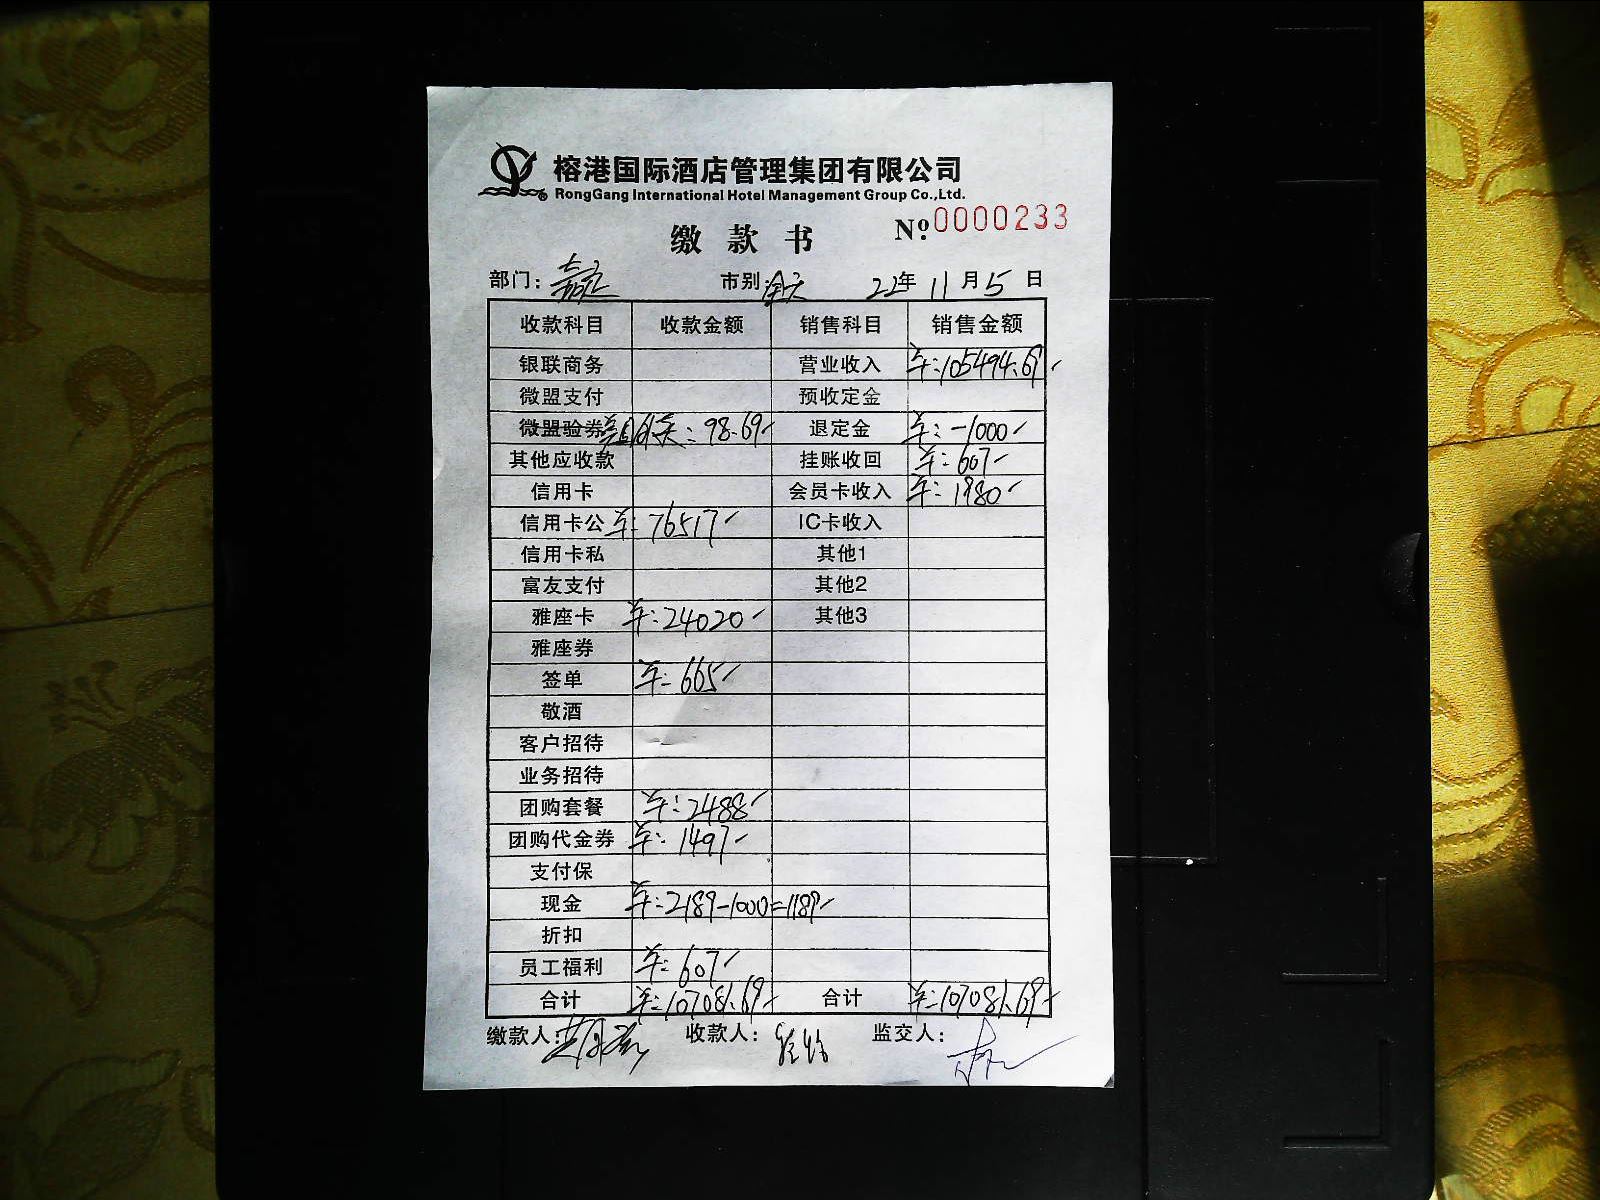 榕港国际酒店管理集团有限公司
RongGang International Hotel Management Group Co.,Ltd.
缴款书 Nº:0000233
部门: 市别: 全天 22年 11月 5日
收款科目 收款金额 销售科目 销售金额
银联商务 营业收入 羊:105494.69
微盟支付 预收定金
微盟验券 98.69 退定金 羊:-1000
其他应收款 挂账收回 羊:607
信用卡 会员卡收入 羊:1980
信用卡公 羊:76517 IC卡收入
信用卡私 其他1
富友支付 其他2
雅座卡 羊:24020 其他3
雅座券
签单 羊:665
敬酒
客户招待
业务招待
团购套餐 羊:2488
团购代金券 羊:1497
支付保
现金 羊:2189-1000=1189
折扣
员工福利 羊:607
合计 羊:107081.69 合计 羊:107081.69
缴款人: 收款人: 监交人: